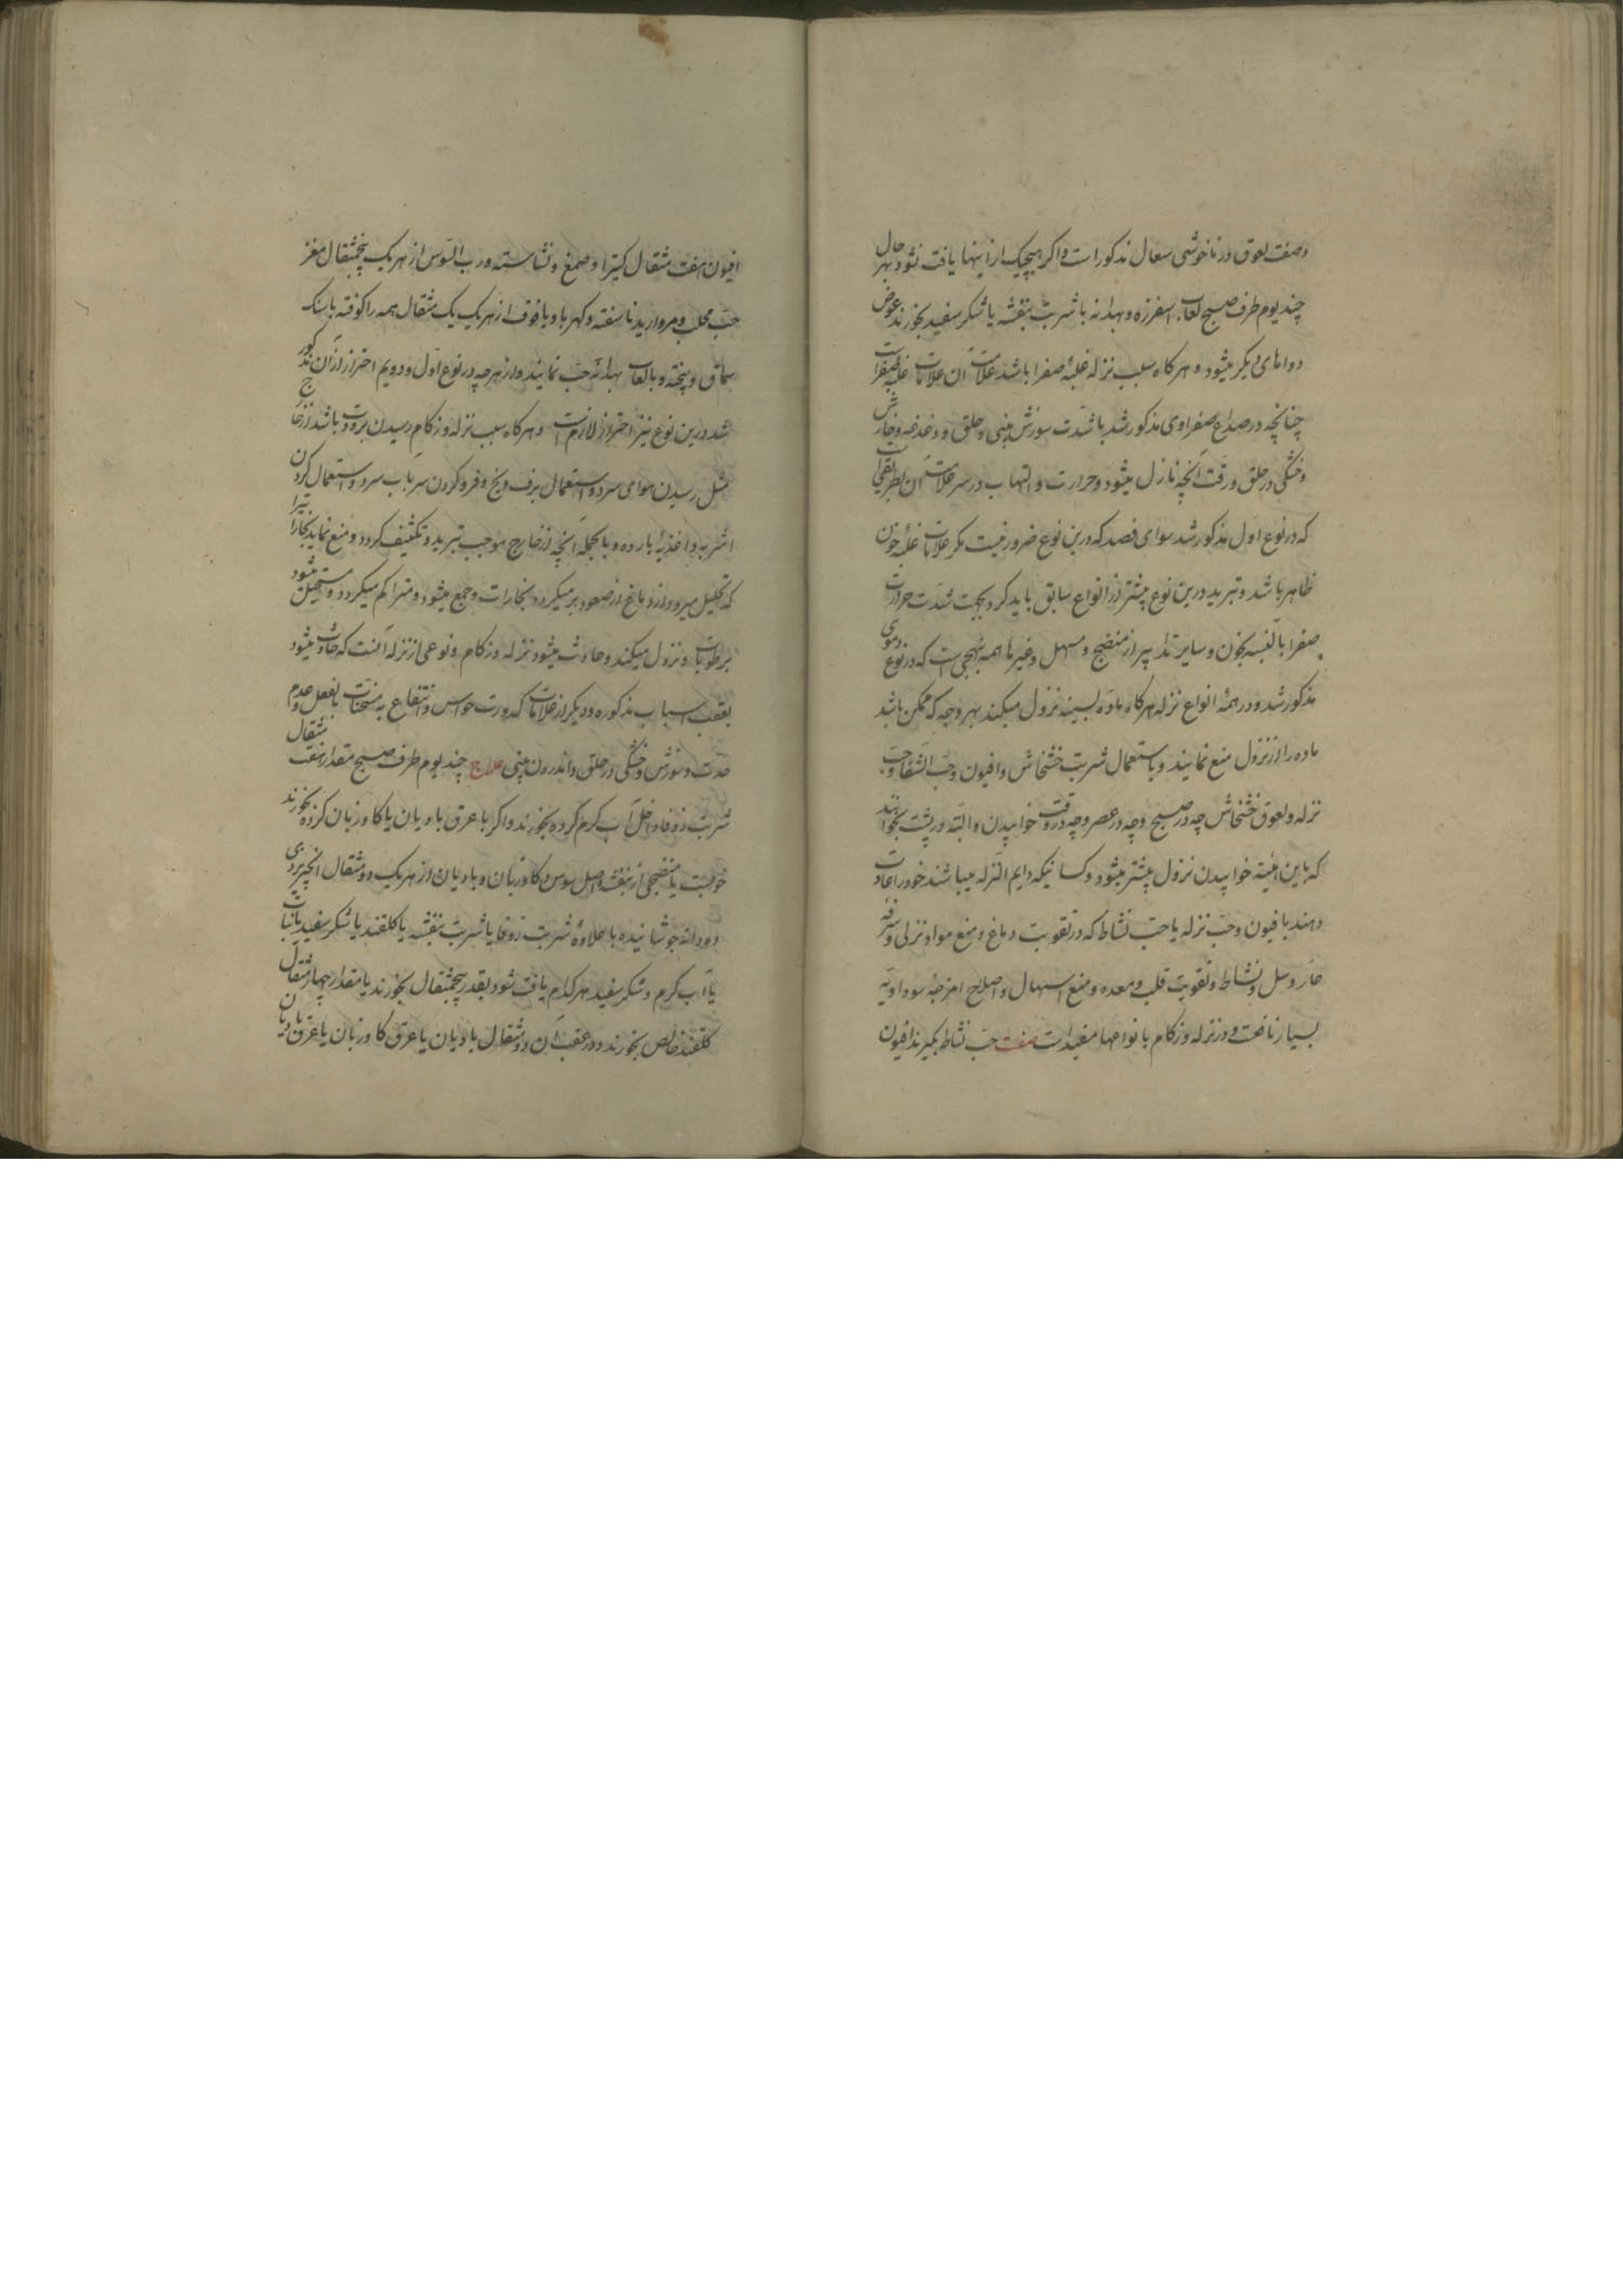 وصفت لعوق در ناخوشی سعال مذکور است و اکر هیچیک از اینها یافت نشود بهر حال
چند یوم طرف صبح لعاب اسفرزه و بهدانه با شربت بنفشه یا شکر سفید بخورند عوض
دواهای دیکر میشود و هر کاه سبب نزله غلبهٔ صفرا باشد علامت آن علامات غلبهٔ صفراست
چنانچه در صداع صفراوی مذکور شد با شدت سوزش بینی و حلق و دغدغه و خارش
و خشکی در حلق و رقت آنچه نازل میشود و حرارت و التهاب در سر علامت آن بطریقی است
که در نوع اول مذکور شد سوای فصد که درین نوع ضرور نیست مکر علامات غلبهٔ خون
ظاهر باشد و تبرید درین نوع بیشتر از انواع سابق باید کرد بجهت شدت حرارت
صفرا بالنسبه بخون و سایر تدابیر از منضج و مسهل و غیرها همه بنهجی است که در نوع دموی
مذکور شد و در همهٔ انواع نزله هرکاه ماده بسینه نزول میکند بهر وجه که ممکن باشد
ماده را از نزول منع نمایند و باستعمال شربت خشخاش و افیون و حب الشفا و حب
نزله و لعوق خشخاش چه در صبح و چه در عصر و چه در وقت خوابیدن و البته در پشت بخوابند
که باین هیئة خوابیدن نزول بیشتر میشود و کسانیکه دایم النزله میباشند خود را عادت
دهند بافیون و حب نزله یا حب نشاط که در تقویت دماغ و منع مواد نزلی و سرفه
حار و سل و نشاط و تقویت قلب و معده و منع اسهال و اصلاح امزجهٔ سوداویه
بسیار نافعست و در نزله و زکام بانواعها مفید است صفت حب نشاط بکیرند افیون
افیون هفت مثقال کتیرا و صمغ و نشاسته و رب السوس از هر یک پنجمثقال مغز
حب محلب و مروارید ناسفته و کهربا و یاقوت از هر یک یک مثقال همه را کوفته با سنک
سماق و پخته و بالعاب بهدانه حب نمایند و از هر چه در نوع اول و دویم احتراز از آن مذکور
شد درین نوع نیز احتراز لازمست و هر کاه سبب نزله و زکام رسیدن برودت باشد از خارج
مثل رسیدن هوای سرد و استعمال برف و یخ و فرو کردن سر بآب سرد و استعمال کردن
اشربه و اغذیهٔ بارده و بالجمله آنچه از خارج موجب تبرید و تکثیف کردد و منع نماید بخارات را
که تحلیل میرود از دماغ از صعود بر میکردد بخارات و جمع میشود و متراکم میکردد و مستحیل میشود
برطوبات و نزول میکند و حادث میشود نزله و زکام و نوعی از نزله آنست که حادث میشود
بعقب اسباب مذکوره و دیکر از علامات کدورت حواس و انتفاع به مسخنات بالفعل و عدم
حدت و سوزش و خشکی در حلق و اندرون بینی علاج چند یوم طرف صبح مقدار هفت مثقال
شربت زوفا داخل آب کرم کرده بخورند و اکر با عرق بادیان یا کاو زبان کرده بخورند
خوبست یا منضجی از بنفشه و اصل سوس و کاو زبان و بادیان از هر یک دو مثقال انجیر یزدی
ده دانه جوشانیده با علاوهٔ شربت زوفا یا شربت بنفشه یا کلقند یا شکر سفید یا نبات
یا آب کرم و شکر سفید هر کدام یافت شود بقدر پنجمثقال بخورند یا مقدار چهار مثقال
کلقند خالص بخورند و در عقب آن دو مثقال بادیان یا عرق کاو زبان یا عرق بادیان